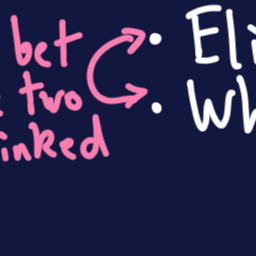 bet
two
inked
Eli
Wh